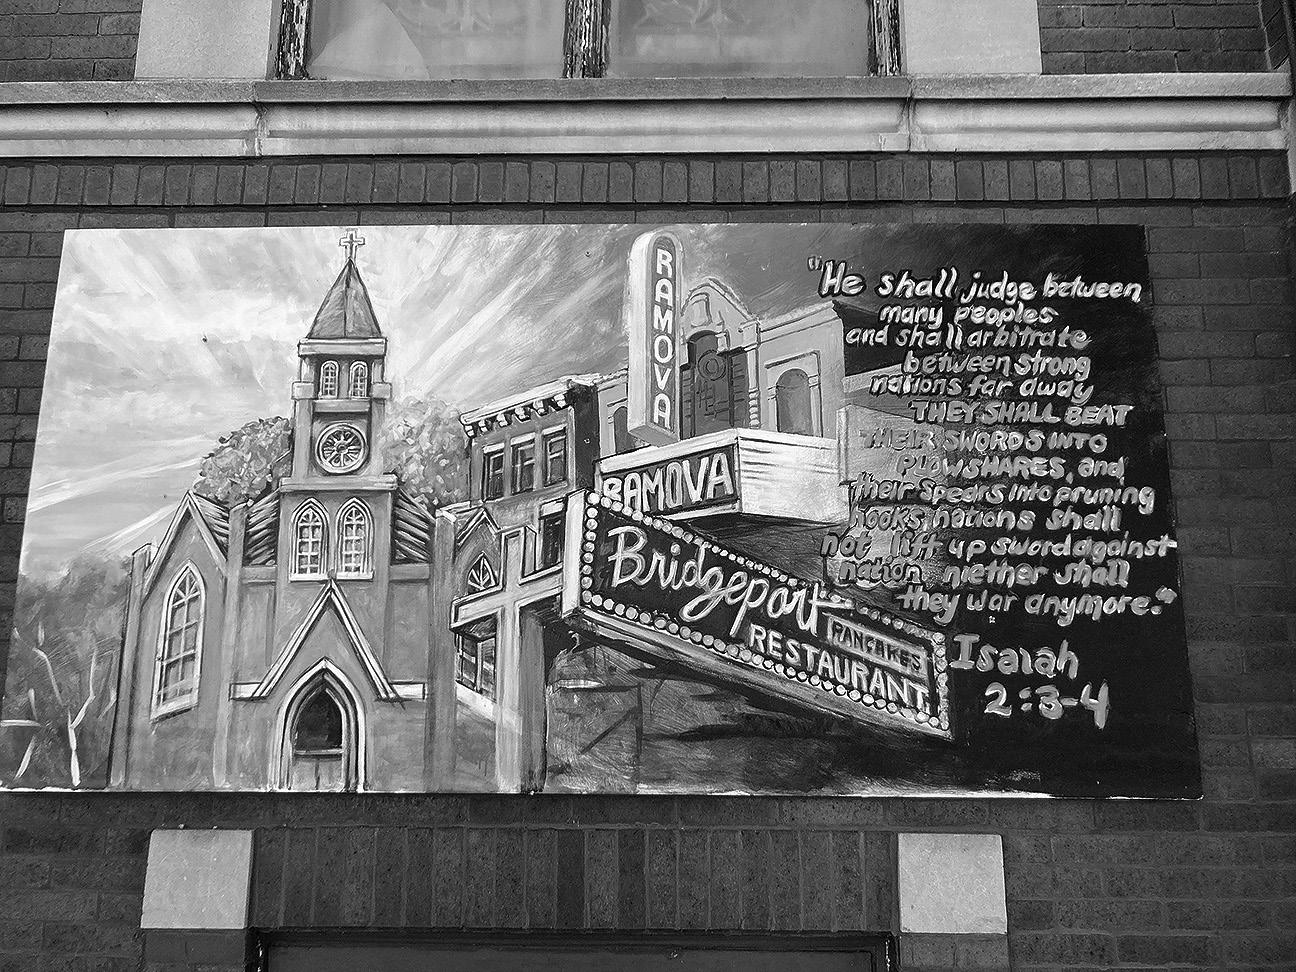 RAMOVA
RAMOVA
Bridgeport
PANCAKES
RESTAURANT
"He shall judge between
many peoples
and shall arbitrate
between strong
nations far away
THEY SHALL BEAT
THEIR SWORDS INTO
PLOWSHARES, and
their spears into pruning
hooks, nations shall
not lift up sword against
nation niether shall
they war anymore."
Isaiah
2:3-4